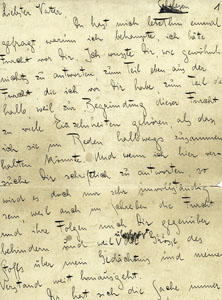 1
Liebster Vater,
Du hast mich letzthin einmal
gefragt, warum ich behaupte, ich hätte
Furcht vor Dir. Ich wusste Dir, wie gewöhnlich,
nichts zu antworten, zum Teil eben aus der
Furcht die ich vor Dir habe, zum Teil des-
halb weil zur Begründung dieser Furcht
zu viele Einzelnheiten gehören, als dass
ich sie im Reden halbwegs zusammen-
halten könnte. Und wenn ich hier ver-
suche Dir schriftlich zu antworten, so
wird es doch nur sehr unvollständig
sein, weil auch im Schreiben die Furcht
und ihre Folgen mich Dir gegenüber
behindern und weil die Grösse des
Stoffs über mein Gedächtnis und meinen
Verstand weit hinausgeht.
Dir hat sich die Sache immer